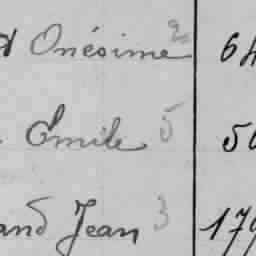 Onésime 2 64
Émile 5 50
and Jean 3 179